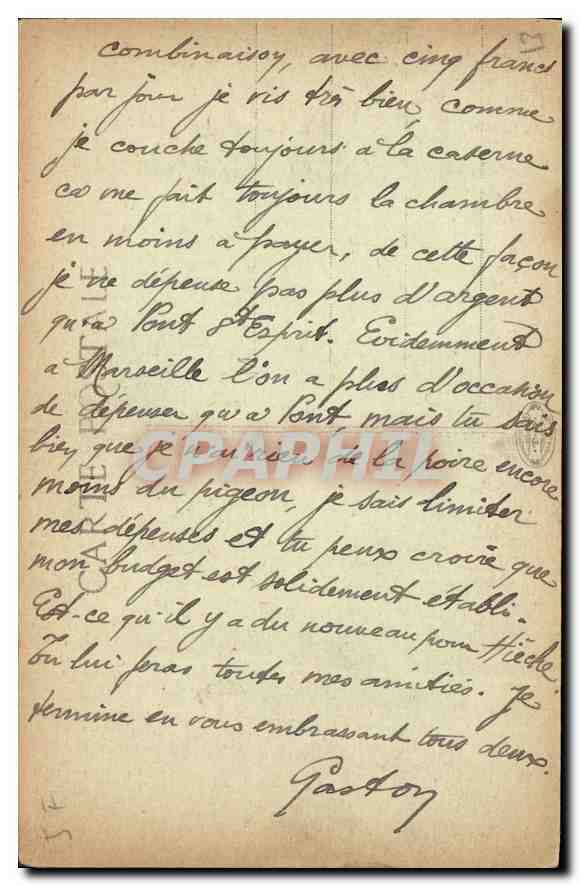 combinaison, avec cinq francs
par jour je vis très bien, comme
je couche toujours à la caserne
ca me fait toujours la chambre
en moins à payer, de cette façon
je ne dépense pas plus d'argent
qu'a Pont St Esprit. Evidemment
a Marseille l'on a plus d'occasion
de dépenser qu'a Pont, mais tu sais
bien que je n'ai rien de la poire encore
moins du pigeon, je sais limiter
mes dépenses et tu peux croire que
mon budget est solidement établi.
Est-ce qu'il y a du nouveau pour
Tu lui feras toutes mes amitiés. Je
termine en vous embrassant tous deux.
Gaston
CARTE POSTALE
CPAPHIL